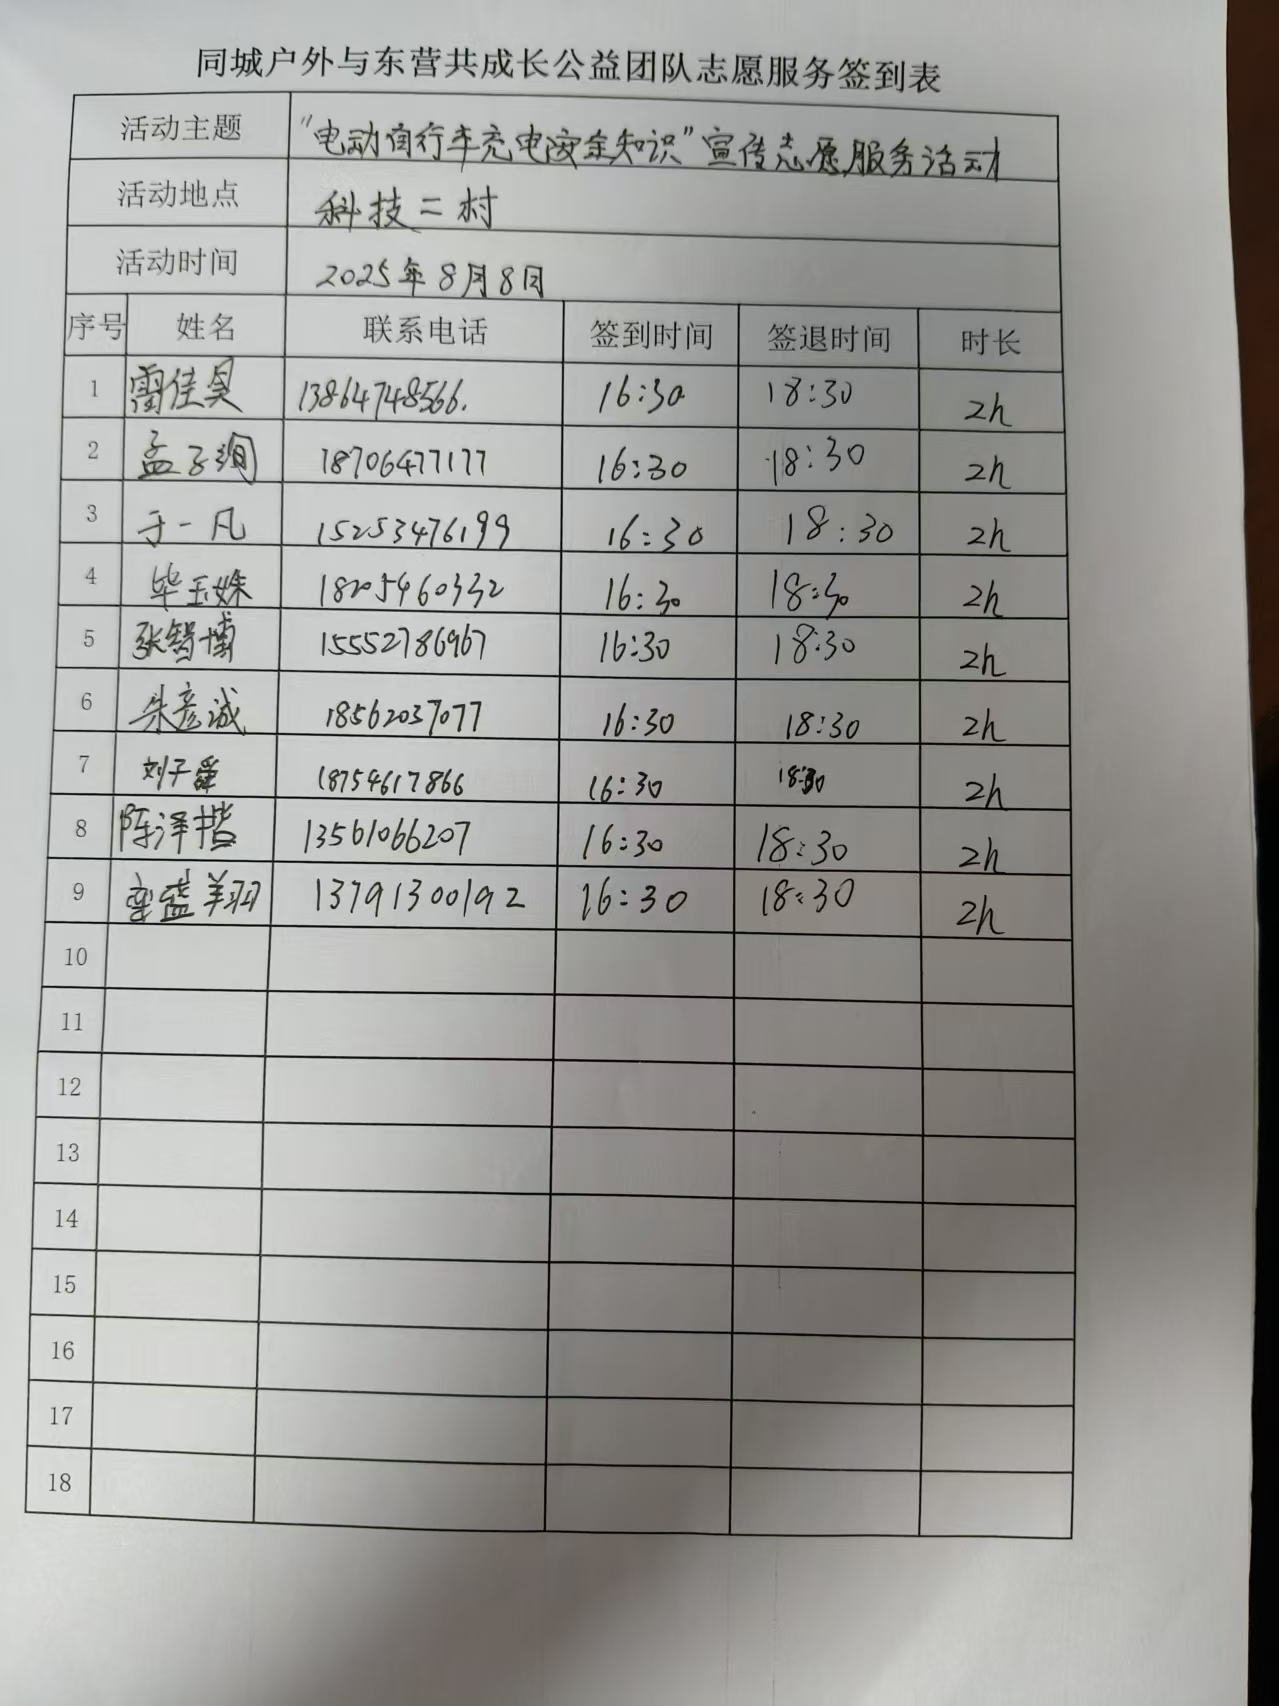 同城户外与东营共成长公益团队志愿服务签到表
活动主题 "电动自行车充电安全知识"宣传志愿服务活动
活动地点 科技二村
活动时间 2025年8月8日
序号 姓名 联系电话 签到时间 签退时间 时长
1 雷佳昊 13864748566. 16:30 18:30 2h
2 孟子絢 18706477177 16:30 18:30 2h
3 于一凡 15253476199 16:30 18:30 2h
4 毕玉姝 18205460332 16:30 18:30 2h
5 张智博 15552786967 16:30 18:30 2h
6 朱彦诚 18562037077 16:30 18:30 2h
7 刘子舜 18754617866 16:30 18:30 2h
8 陈泽楷 13561066207 16:30 18:30 2h
9 盛翔 13791300192 16:30 18:30 2h
10
11
12
13
14
15
16
17
18